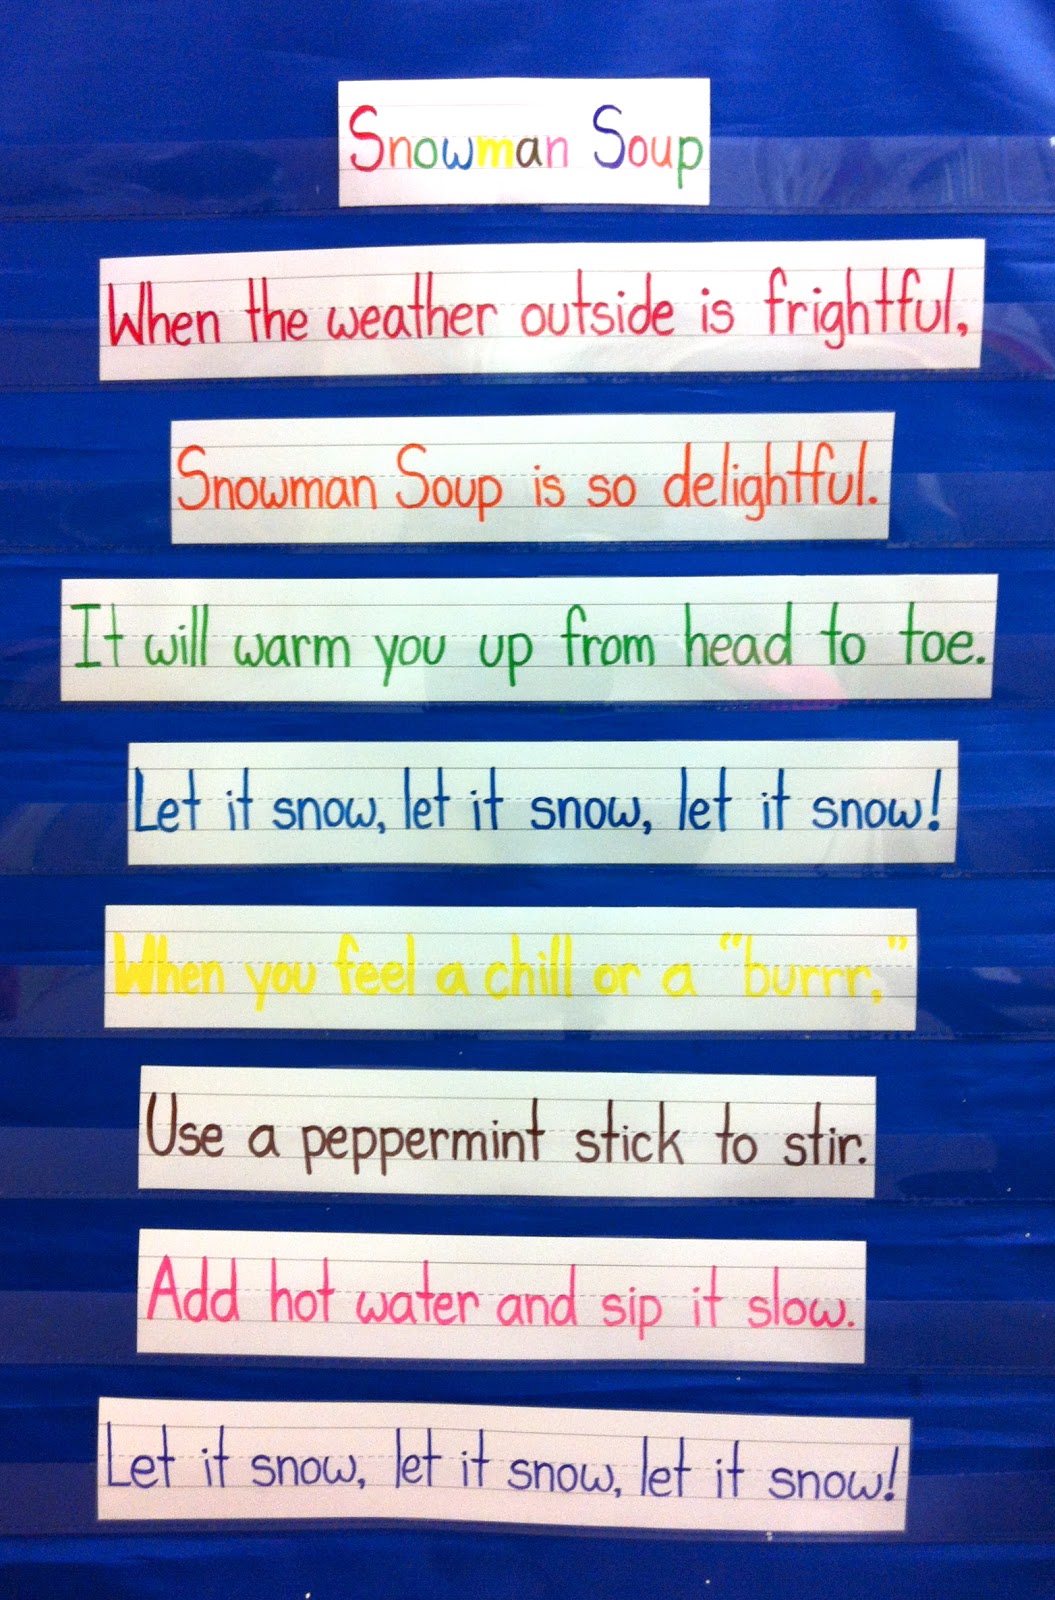 Snowman Soup
When the weather outside is frightful,
Snowman Soup is so delightful.
It will warm you up from head to toe.
Let it snow, let it snow, let it snow!
When you feel a chill or a "burrr,"
Use a peppermint stick to stir.
Add hot water and sip it slow.
Let it snow, let it snow, let it snow!